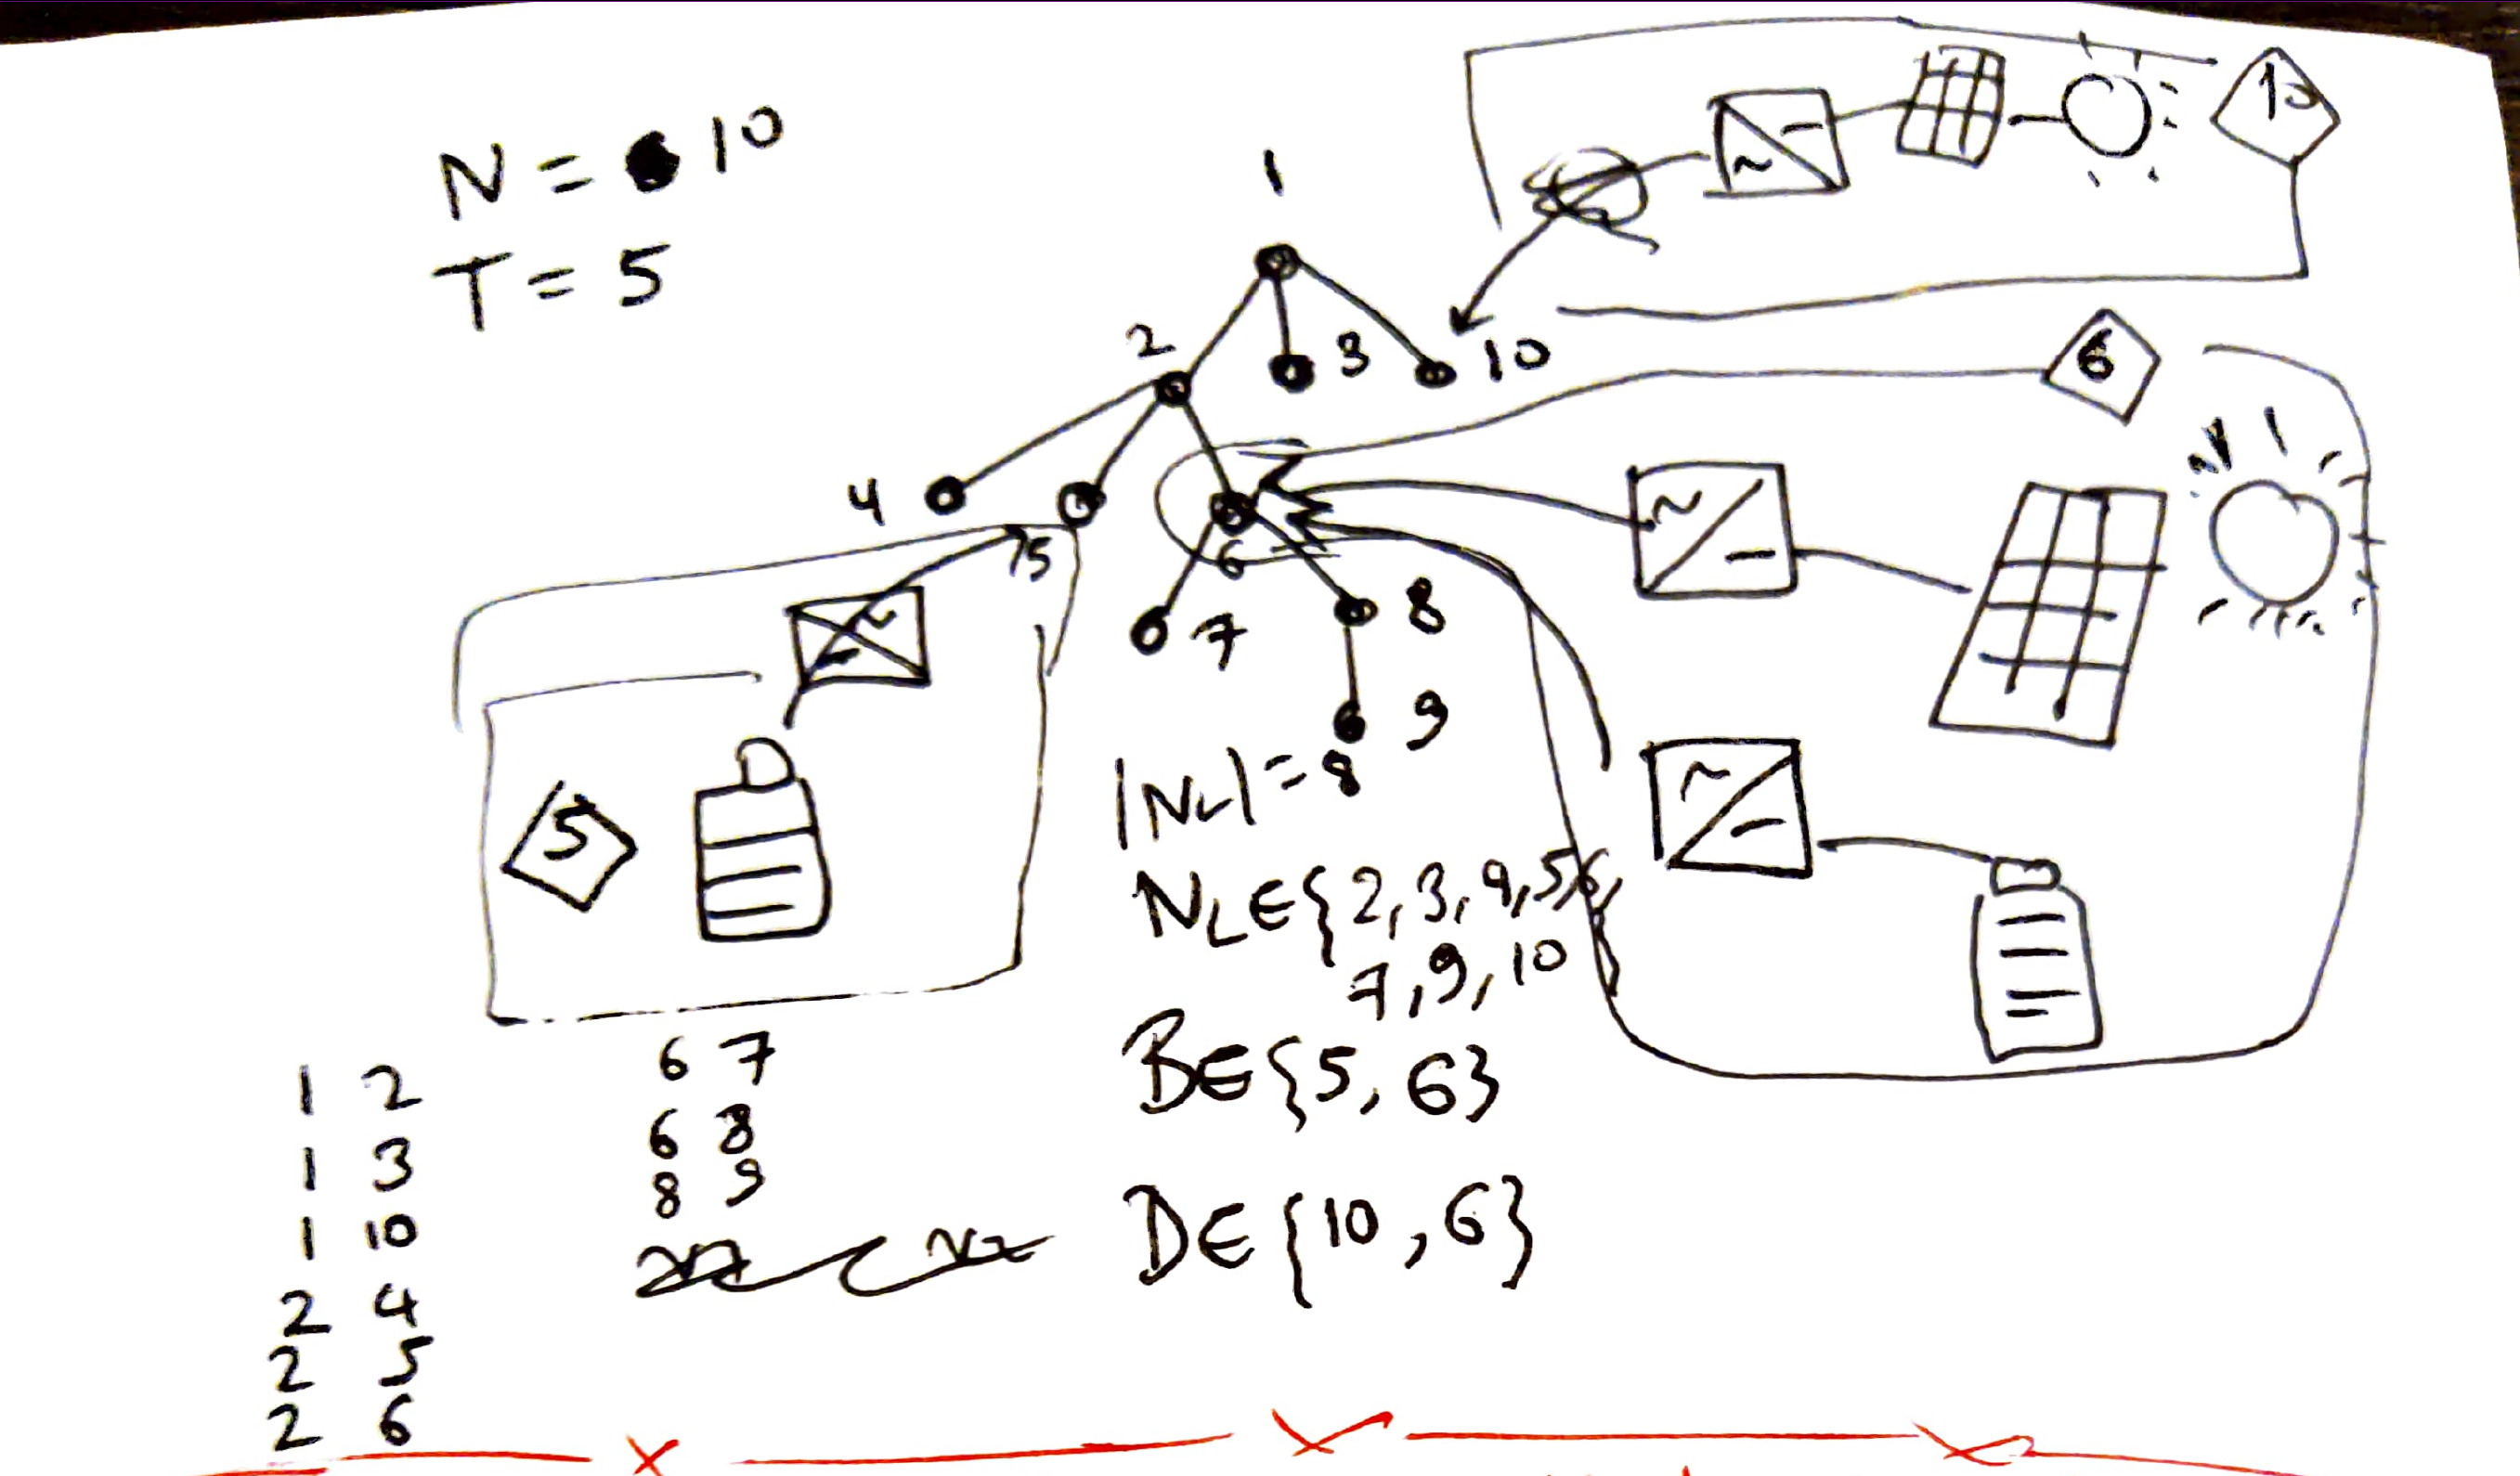 N = 10
T = 5
1
10
2
3
10
6
4
5
6
7
8
9
5
|NL| = 8
NL∈{2, 3, 9, 5, 6,
7, 9, 10
B∈{5, 6}
D∈{10, 6}
1 2
1 3
1 10
2 4
2 5
2 6
6 7
6 8
8 9